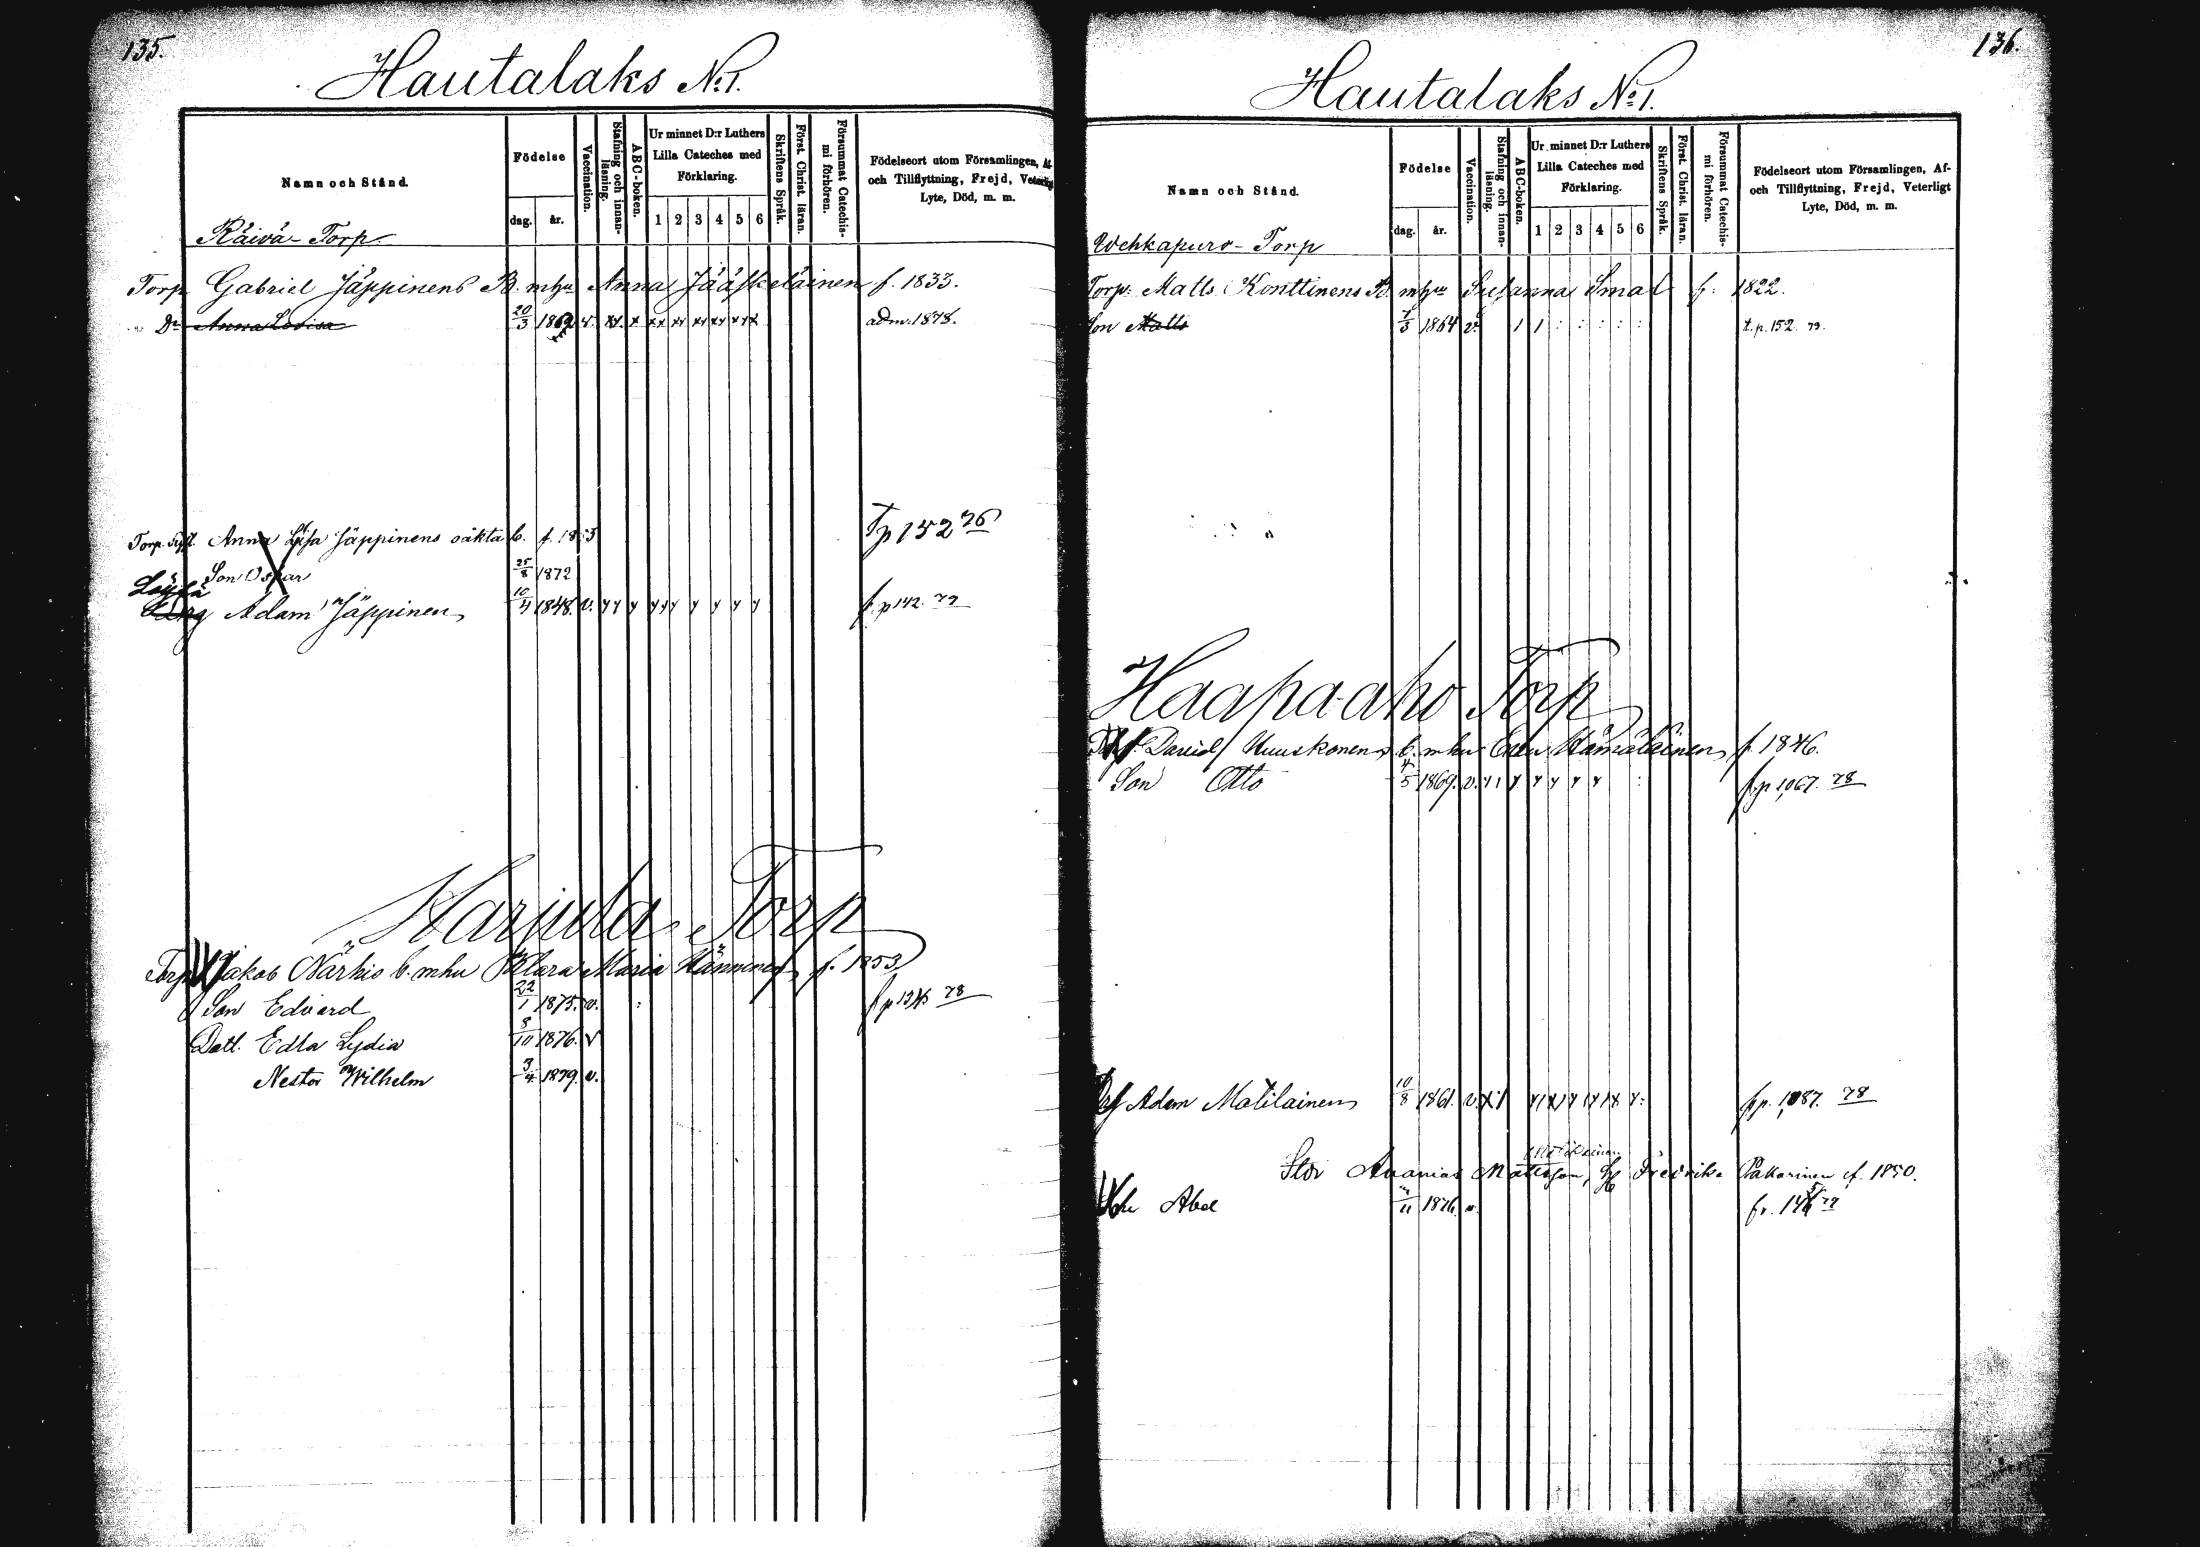 135.
Hautalaks No 1.
Namn och Stånd.
Födelse
dag. år.
Vaccination.
Stafning och innan-läsning.
ABC-boken.
Ur minnet D:r Luthers
Lilla Cateches med
Förklaring.
1 2 3 4 5 6
Skriftens Språk.
Först. Christ. läran.
Försummat Catechis-mi förhören.
Födelseort utom Församlingen, Af-
och Tillflyttning, Frejd, Veterligt
Lyte, Död, m. m.
Räivä- Torp.
Torp Gabriel Jäppinens B. mhu Anna Jääskeläinen f. 1833.
Dr Anna Lovisa 20/3 1862 v. adm. 1878.
Anna Lisa Jäppinens oäkta b.
Tp 152 76
Son Oskar 25/8 1872
Adam Jäppinen 10/4 1848. v. f. p 142. 79
Harjula Torp
Torp Jakob Närhio b. mhu Klara Maria Hänninen f. 1853
Son Edvard 22/1 1875. v. 78
Dott. Edla Lydia 8/10 1876. v
Nestor Wilhelm 3/4 1879. v.
136.
Hautalaks No 1.
Namn och Stånd.
Födelse
dag. år.
Vaccination.
Stafning och innan-läsning.
ABC-boken.
Ur minnet D:r Luthers
Lilla Cateches med
Förklaring.
1 2 3 4 5 6
Skriftens Språk.
Först. Christ. läran.
Försummat Catechis-mi förhören.
Födelseort utom Församlingen, Af-
och Tillflyttning, Frejd, Veterligt
Lyte, Död, m. m.
Wehkapuro- Torp
Torp. Matts Konttinens B. mhu Susanna Smal f. 1822.
Son Matts 1864 v. t. p. 152. 79.
Haapa-aho Torp
David Huuskonens b. mhu Eva Hämäläinen f. 1846.
Son Otto 4/5 1869. v. f. p 1,067. 78
Adam Matilainen 10/8 1861. v. fr p. 1,087. 78
Ananias Matsson, Fredrika Pakarinen f. 1850.
Abel 1876. v. 79